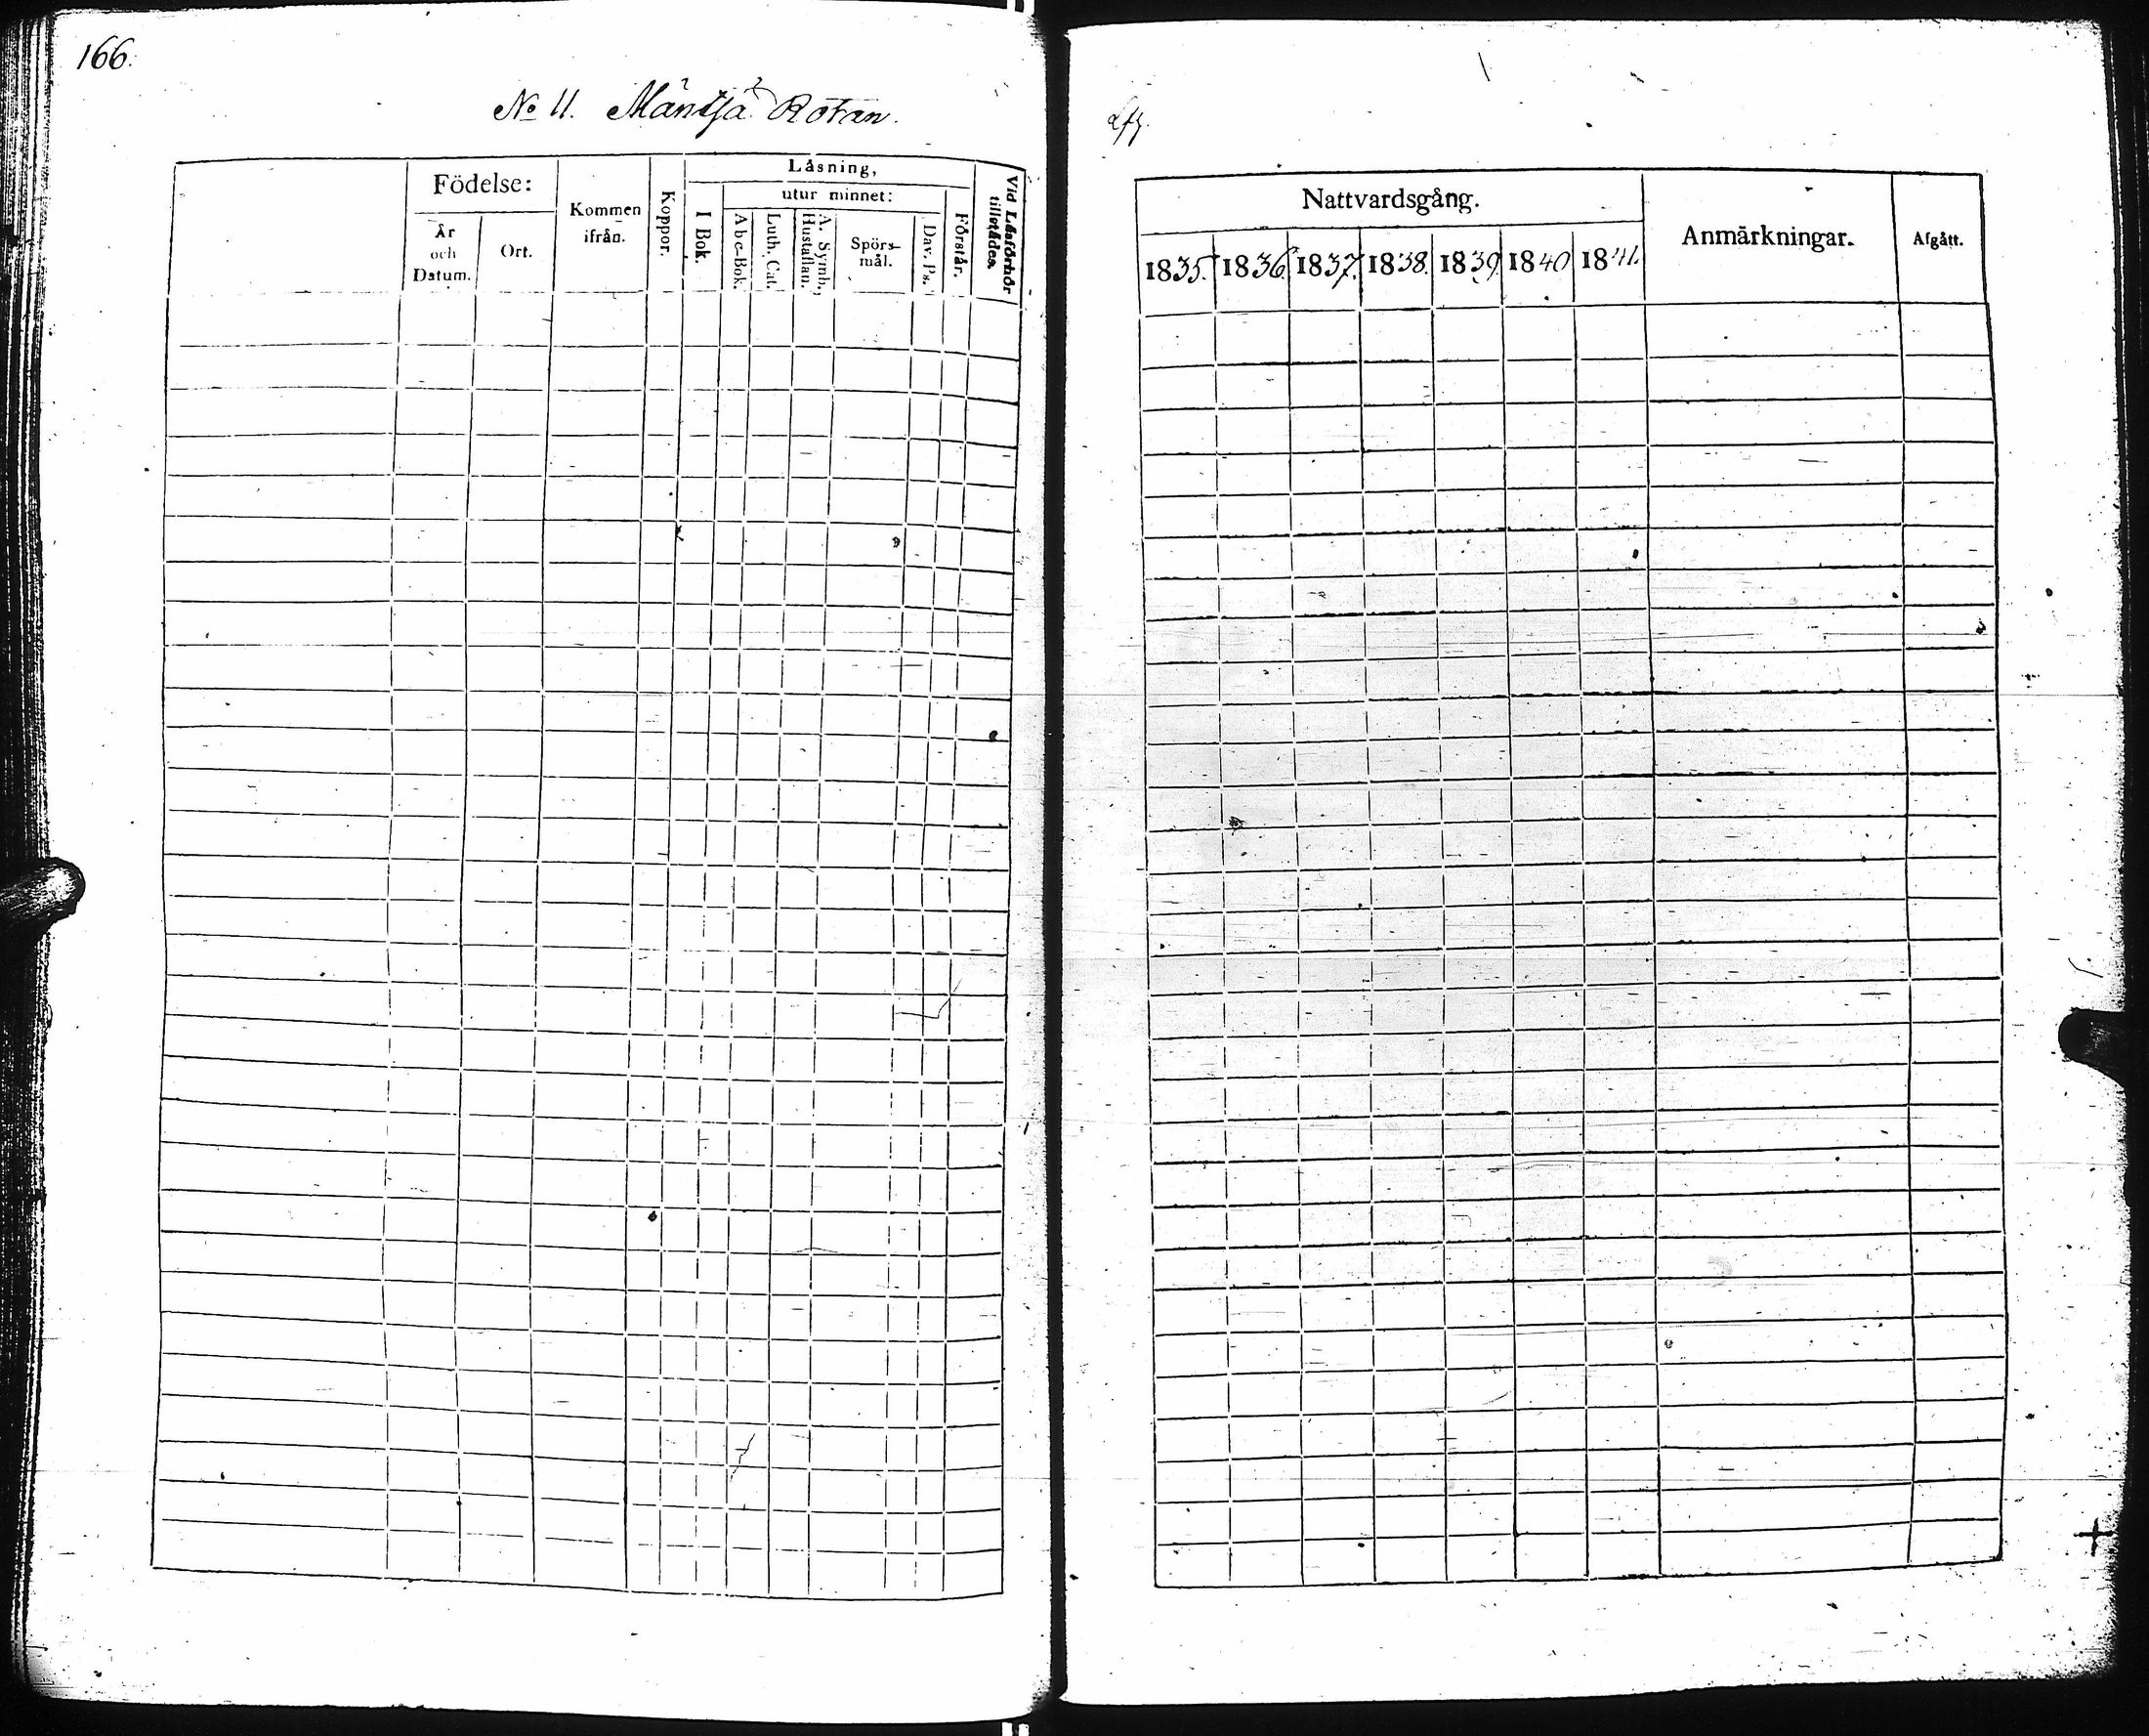 166.
No 11. Mäntsä Rotan.
Födelse:
År och Datum.
Ort.
Kommen ifrån.
Koppor.
Läsning,
I Bok.
utur minnet:
Abc-Bok.
Luth. Cat.
A. Symb., Hustaflan.
Spörsmål.
Dav. Ps.
Förstår.
Vid Läsförhör tillstädes.
Nattvardsgång.
1835. 1836. 1837. 1838. 1839. 1840 1841.
Anmärkningar.
Afgått.